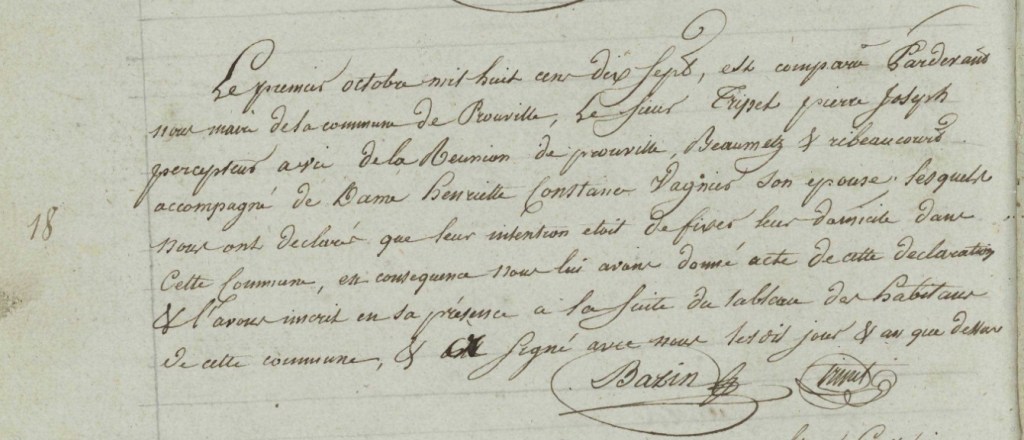 Le premier octobre mil huit cens dix sept, est comparu Pardevant
nous maire de la commune de Prouville, Le sieur Tripet pierre Joseph
percepteur a vie de la Reunion de prouville, Beaumetz & ribeaucourt
accompagné de Dame henriette Constance Vagnier son epouse lesquels
18
nous ont declaré que leur intention etoit de fixer leur domicile dans
Cette Commune, en consequence nous lui avons donné acte de cette declaration
& l'avons inscrit en sa présence a la suite du tableau des habitans
de cette commune, & signé avec nous lesdit jour & an que dessus
Bazin Tripet